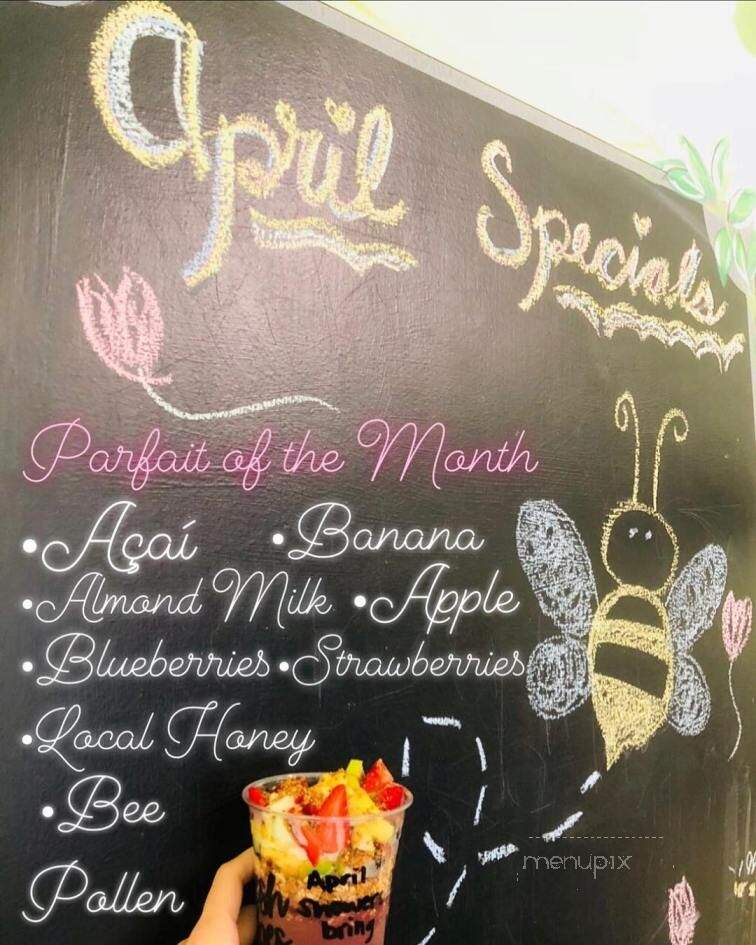 April
Specials
Parfait of the Month
•Açaí •Banana
•Almond Milk •Apple
•Blueberries •Strawberries
•Local Honey
•Bee
Pollen
April
showers
bring
menupix